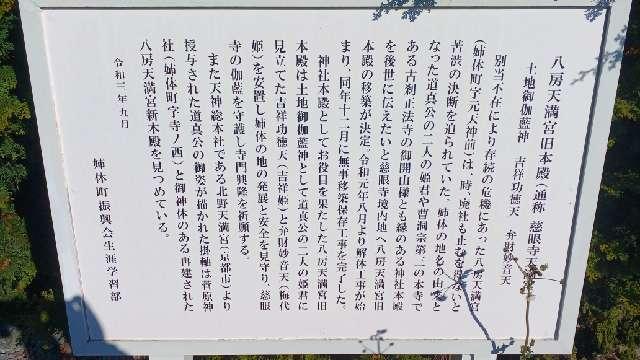 八房天満宮旧本殿(通称 慈眼寺
土地御伽藍神 吉祥功徳天 弁財妙音天
別当不在により存続の危機にあった八房天満宮
(姉体町字元天神前)は、一時、廃社も止むを得ないと
苦渋の決断を迫られていた。姉体の地名の由来と
なった道真公の二人の姫君や曹洞宗第三の本寺で
ある古刹正法寺の御開山様とも縁のある神社本殿
を後世に伝えたいと慈眼寺境内地へ八房天満宮旧
本殿の移築が決定、令和元年八月より解体工事が始
まり、同年十二月に無事移築保存工事を完了した。
神社本殿としてお役目を果たした八房天満宮旧
本殿は土地御伽藍神として道真公の二人の姫君に
見立てた吉祥功徳天(吉祥姫)と弁財妙音天(梅代
姫)を安置し姉体の地の発展と安全を見守り、慈眼
寺の伽藍を守護し寺門興隆を祈願する。
また天神総本社である北野天満宮(京都市)より
授与された道真公の御姿が描かれた掛軸は菅原神
社(姉体町字寺ノ西)と御神体のある再建された
八房天満宮新本殿を見つめている。
令和二年九月
姉体町振興会生涯学習部